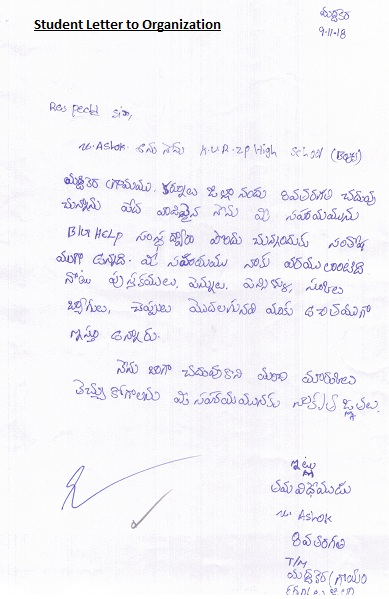 Student Letter to Organization
మద్దికెర
9-11-18
Respected sir,
u. Ashok అను నేను K.U.R. ZP High School (Boys)
మద్దికెర గ్రామము. కర్నూలు జిల్లా నందు 8వతరగతి చదువు
చున్నాను పేద విద్యార్థినైన నేను మీ సహాయమును
Bill HELP సంస్థ ద్వారా పొందు చున్నందుకు సంతోష
ముగా ఉన్నది. మీ సహాయము నాకు వరములాంటిది
నోటు పుస్తకములు. పెన్నులు. పెన్సిళ్ళు, స్కూలు
బ్యాగులు, చెప్పులు మొదలగునవి మాకు ఉచితముగా
ఇస్తూ ఉన్నారు.
నేను బాగా చదువుకొని మంచి మార్కులు
తెచ్చు కోగలను మీ సహాయమునకు కృతజ్ఞతలు.
ఇట్లు
తమ విధేయుడు
u. Ashok
8వతరగతి
T/M
మద్దికెర గ్రామం
కర్నూలు జిల్లా